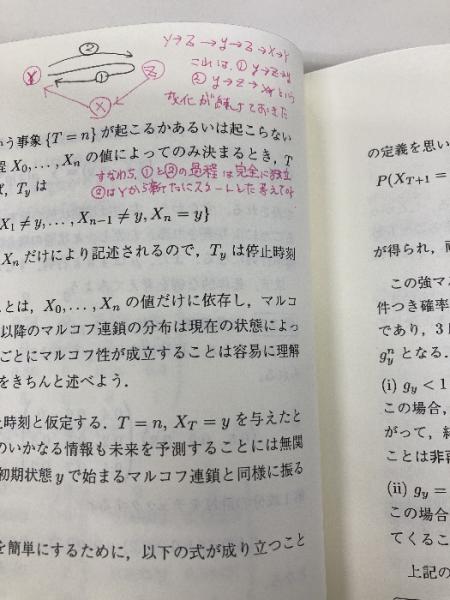 ②
Y
Z
①
X
y→Z→y→Z→X→Y
これは、① y→Z→y
② y→Z→X→y という
変化が続けておきた
いう事象 {T = n} が起こるかあるいは起こらない
程 X₀, . . . , Xₙ の値によってのみ決まるとき, T
すなわち、①と②の過程は完全に独立
ば, T_y は
②はYから新たにスタートした考えてOK
X₁ ≠ y, . . . , Xₙ₋₁ ≠ y, Xₙ = y}
Xₙ だけにより記述されるので, T_y は停止時刻
ことは, X₀, . . . , Xₙ の値だけに依存し, マルコ
以降のマルコフ連鎖の分布は現在の状態によっ
ごとにマルコフ性が成立することは容易に理解
をきちんと述べよう.
止時刻と仮定する. T = n, X_T = y を与えたと
のいかなる情報も未来を予測することには無関
初期状態 y で始まるマルコフ連鎖と同様に振る
を簡単にするために, 以下の式が成り立つこと
の定義を思い
P(X_{T+1} =
が得られ, 両
この強マ
件つき確率
であり, 3
g_y^n となる.
(i) g_y < 1
この場合,
がって, 結
ことは非再
(ii) g_y =
この場合
てくるこ
上記の